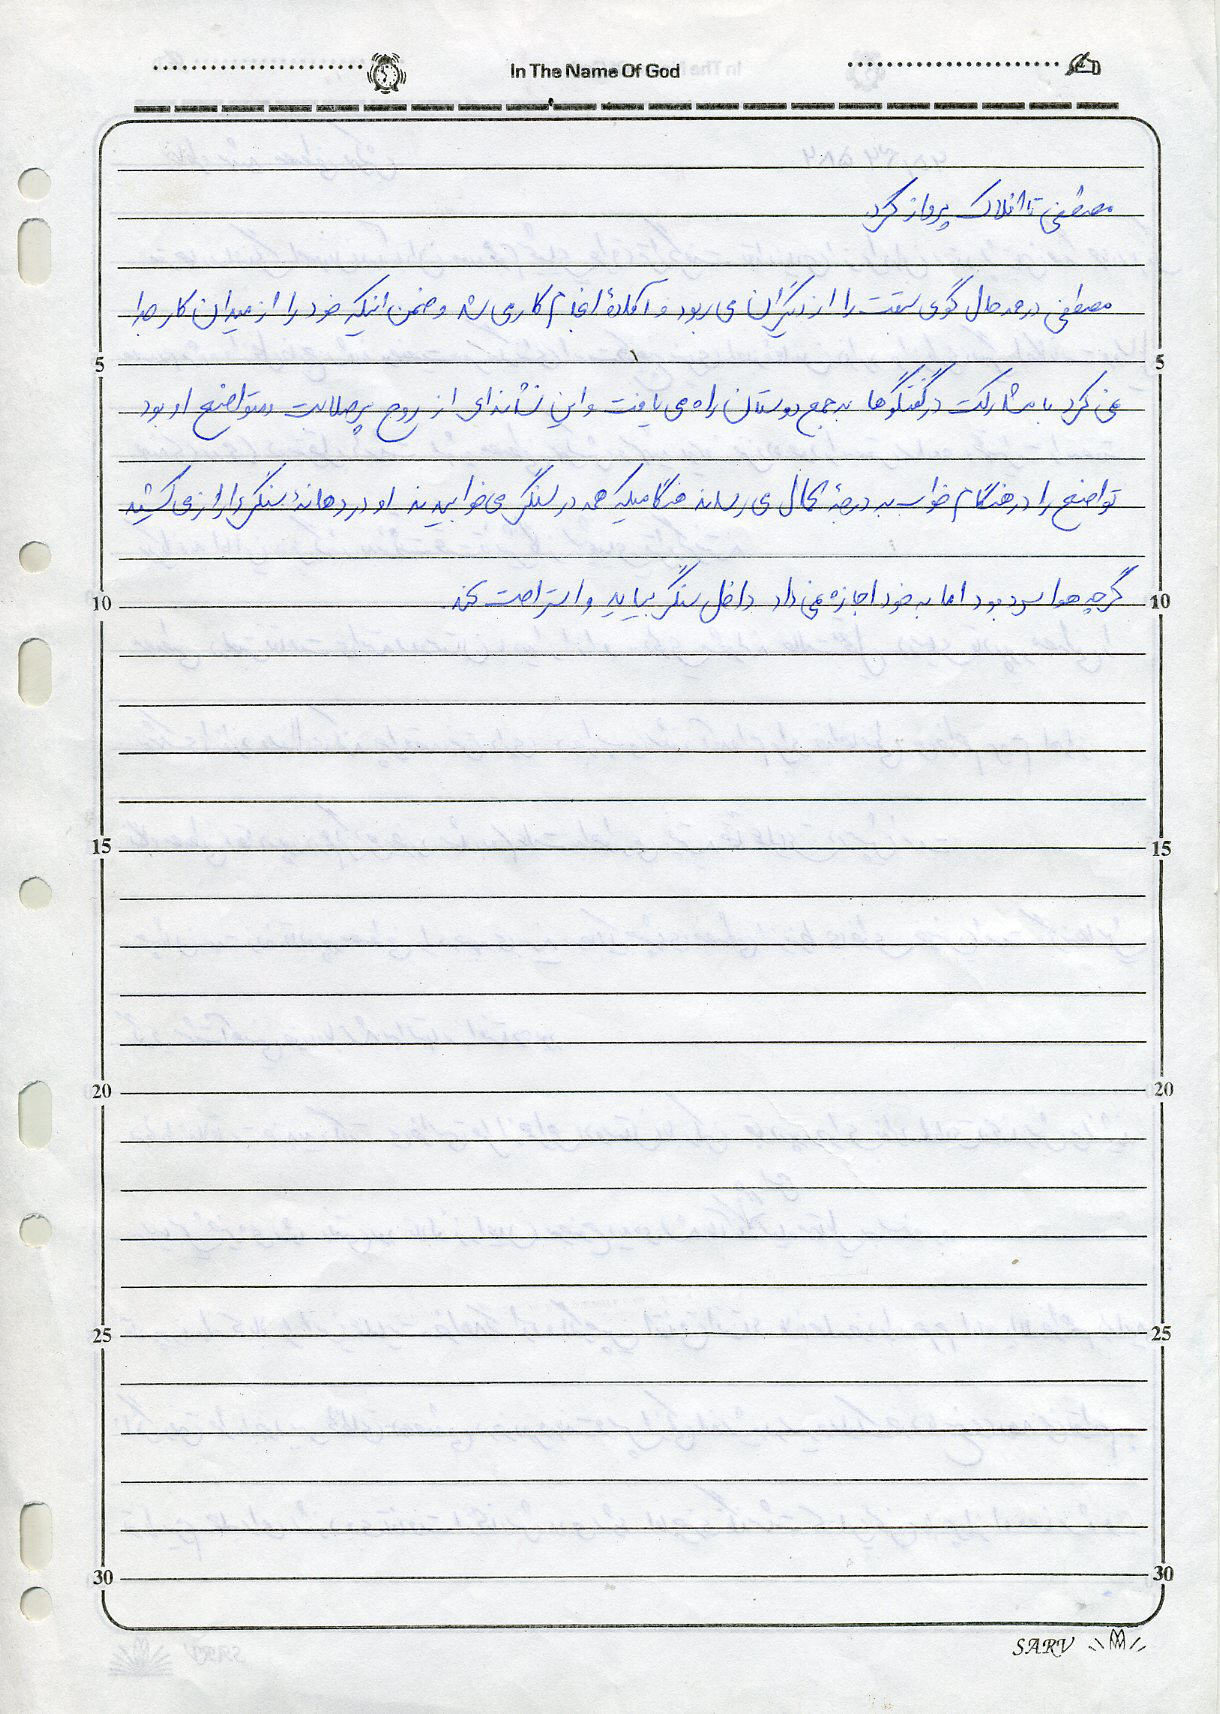 In The Name Of God
مصطفی تا افلاک پرواز کرد.
مصطفی در همه حال گوی سبقت را از دیگران می ربود و آمادهٔ انجام کاری می شد و ضمن اینکه خود را از میدان کار جدا
5 5
نمی کرد با مشارکت در گفتگوها به جمع دوستان راه می یافت و این نشانه‌ای از روح پرصلابت و متواضع او بود
تواضع را در هنگام خواب به درجهٔ کمال می رساند هنگامیکه همه در سنگر می خوابیدند او در دهانهٔ سنگر دراز می کشید
گرچه هوا سرد بود اما به خود اجازه نمی داد داخل سنگر بیاید و استراحت کند.
10 10
15 15
20 20
25 25
30 30
SARV